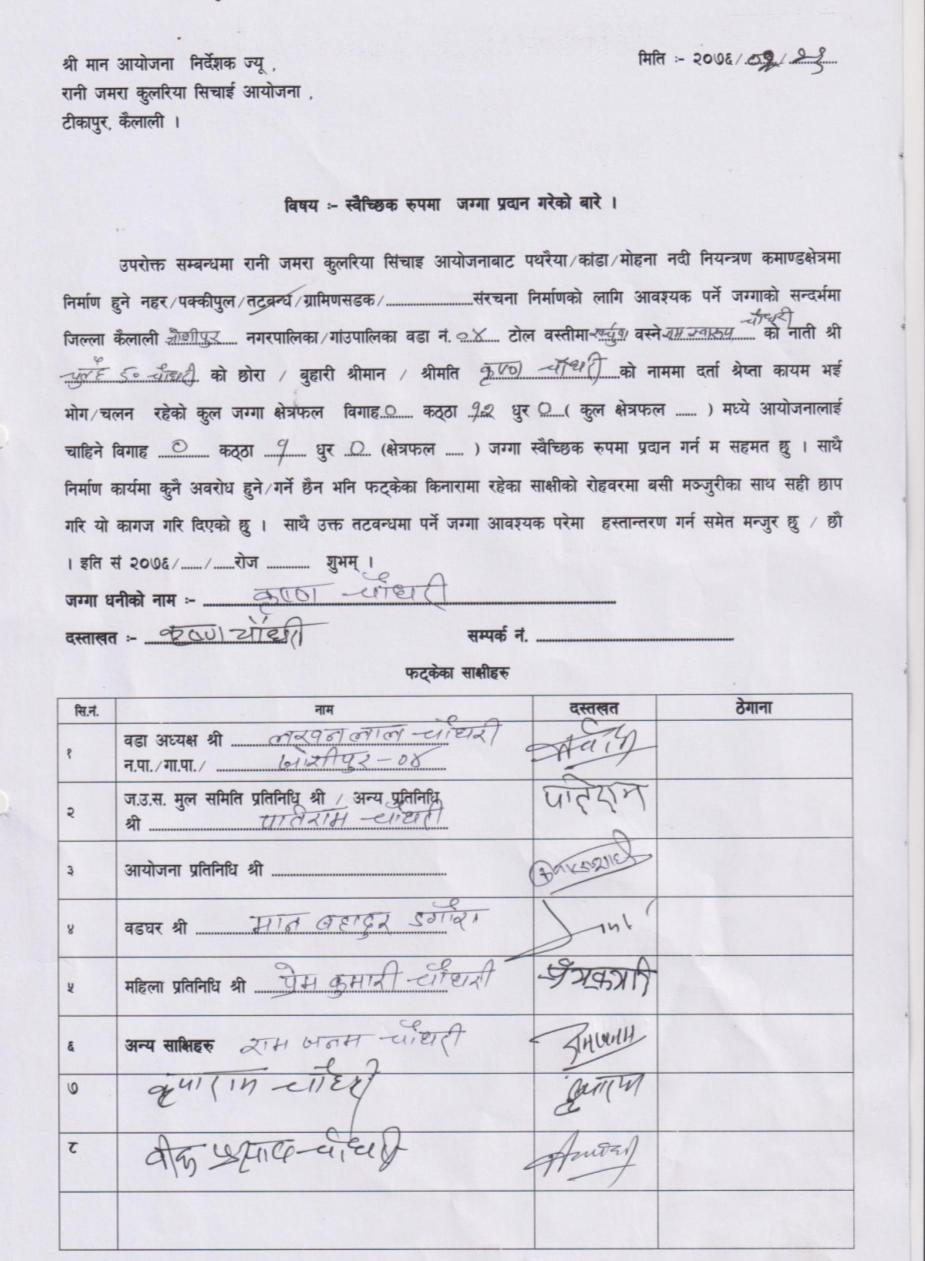 श्री मान आयोजना निर्देशक ज्यू ,
मिति :- २०७६/
रानी जमरा कुलरिया सिचाई आयोजना ,
टीकापुर, कैलाली ।
विषय :- स्वैच्छिक रुपमा जग्गा प्रदान गरेको बारे ।
उपरोक्त सम्बन्धमा रानी जमरा कुलरिया सिंचाइ आयोजनाबाट पथरैया/कांडा/मोहना नदी नियन्त्रण कमाण्डक्षेत्रमा
निर्माण हुने नहर/पक्कीपुल/तट्बन्ध/ग्रामिणसडक/....................संरचना निर्माणको लागि आवश्यक पर्ने जग्गाको सन्दर्भमा
जिल्ला कैलाली जोशीपुर नगरपालिका/गांउपालिका वडा नं. ०४ टोल वस्तीमा वस्ने राम स्वारुप चौधरी को नाती श्री
चौधरी को छोरा / बुहारी श्रीमान / श्रीमति कृष्ण चौधरी को नाममा दर्ता श्रेष्ता कायम भई
भोग/चलन रहेको कुल जग्गा क्षेत्रफल विगाह ० कठ्ठा १२ धुर ० ( कुल क्षेत्रफल ...... ) मध्ये आयोजनालाई
चाहिने विगाह ० कठ्ठा १ धुर ० (क्षेत्रफल ..... ) जग्गा स्वैच्छिक रुपमा प्रदान गर्न म सहमत छु । साथै
निर्माण कार्यमा कुनै अवरोध हुने/गर्ने छैन भनि फट्केका किनारामा रहेका साक्षीको रोहवरमा बसी मञ्जुरीका साथ सही छाप
गरि यो कागज गरि दिएको छु । साथै उक्त तटवन्धमा पर्ने जग्गा आवश्यक परेमा हस्तान्तरण गर्न समेत मन्जुर छु / छौ
। इति सं २०७६/....../......रोज ............ शुभम् ।
जग्गा धनीको नाम :- कृष्ण चौधरी
दस्ताखत :- कृष्ण चौधरी सम्पर्क नं. ........................
फट्केका साक्षीहरु
सि.नं. नाम दस्तखत ठेगाना
१ वडा अध्यक्ष श्री लखन लाल चौधरी
न.पा./गा.पा./ जोशीपुर - ०४
२ ज.उ.स. मुल समिति प्रतिनिधि श्री / अन्य प्रतिनिधि
श्री पतिराम चौधरी पतिराम
३ आयोजना प्रतिनिधि श्री ........................
४ वडघर श्री मान बहादुर डगौरा
५ महिला प्रतिनिधि श्री प्रेम कुमारी चौधरी
६ अन्य साक्षिहरु राम जनम चौधरी रामजनम
७ कृपा राम चौधरी कृपाराम
८ प्रसाद चौधरी